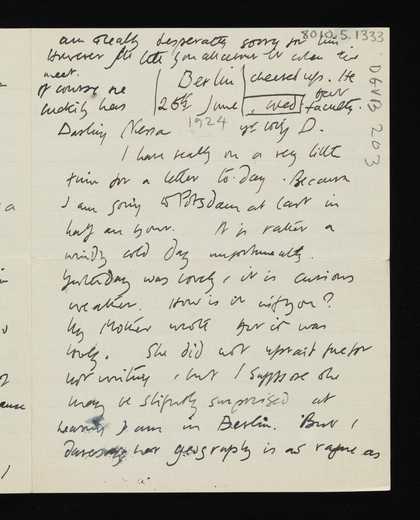 8010.5.1333
am really desperately sorry for him
However I'll tell you all about it when we
meet.
Of course one
luckily has
Berlin
26th June
1924
, Wed
cheered up. He
that
faculty.
yr loving D.
DGVB 203
Darling Nessa
I have really on a very little
time for a letter to-day. Because
I am going to Potsdam at last in
half an hour. It is rather a
windy cold day unfortunately.
Yesterday was lovely, it is curious
weather. How is it with you?
My Mother wrote & it was
lovely. She did not upbraid me for
not writing, but I suppose she
may be slightly surprised at
hearing I am in Berlin. But I
daresay her geography is as vague as
a
of
ause